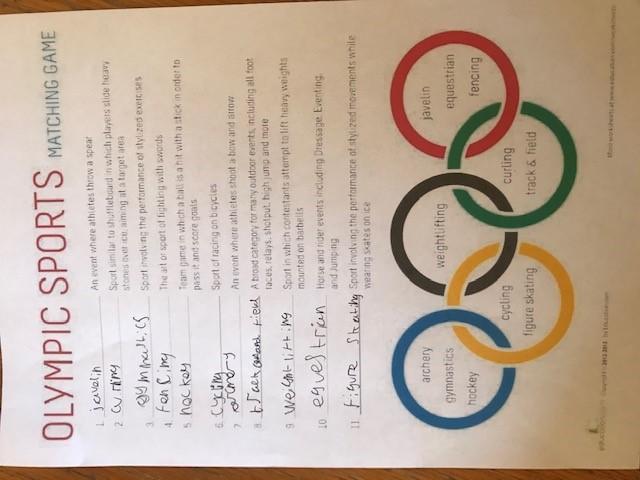 OLYMPIC SPORTS MATCHING GAME
1. javelin An event where athletes throw a spear
2. curling Sport similar to shuffleboard in which players slide heavy
stones over ice, aiming at a target area
3. gymnastics Sport involving the performance of stylized exercises
4. fencing The art or sport of fighting with swords
5. hockey Team game in which a ball is a hit with a stick in order to
pass it and score goals
6. cycling Sport of racing on bicycles
7. An event where athletes shoot a bow and arrow
8. track and field A broad category for many outdoor events, including all foot
races, relays, shotput, high jump and more
9. weight lifting Sport in which contestants attempt to lift heavy weights
mounted on barbells
10. equestrian Horse and rider events including Dressage, Eventing,
and Jumping
11. figure skating Sport involving the performance of stylized movements while
wearing skates on ice
archery
gymnastics
hockey
weightlifting
javelin
equestrian
fencing
cycling
figure skating
curling
track & field